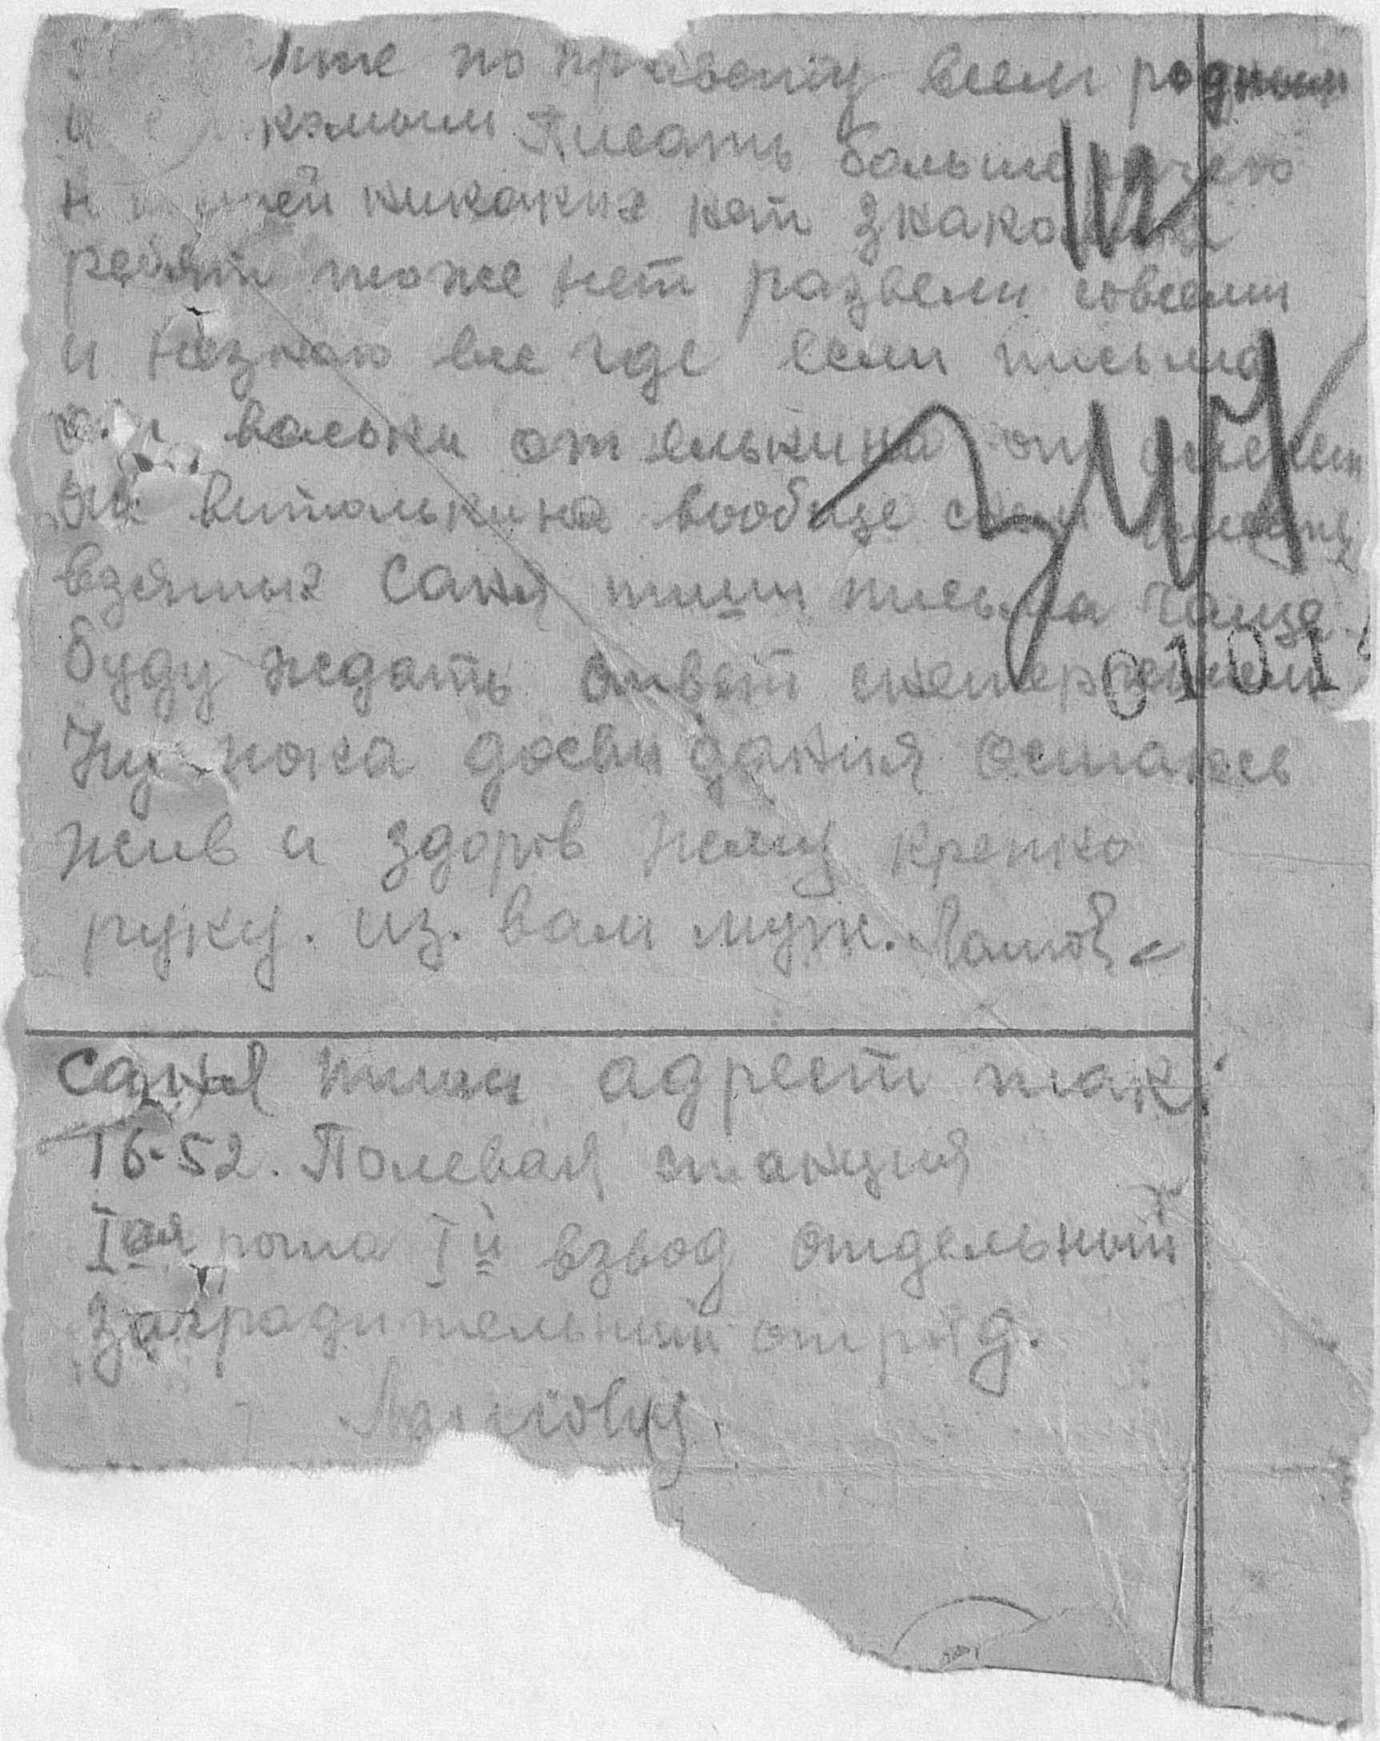 по привету всем родным
и комым Писать больше нечего
н т ей никаких нет знакомых
ребят тоже нет развели совсем
и незнаю вее где если письма
вальки от елькина от
виталькина вообще
взятых Саня пиши письма чаще
буду ждать ответ снетерпением
Ну пока досвидания остаюсь
жив и здоров жму крепко
руку. из. вам муж.
Саня пиши адрест так:
16-52. Полевая станция
Iая рота Iй взвод отдельный
Заградительный отряд.
112
0101